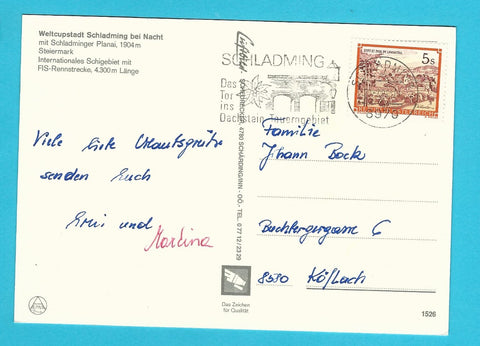 Weltcupstadt Schladming bei Nacht
mit Schladminger Planai, 1904 m
Steiermark
Internationales Schigebiet mit
FIS-Rennstrecke, 4.300 m Länge
Viele liebe Urlaubsgrüße
senden Euch
Erni und
Martina
SCHLADMING
Das
Tor
ins
Dachstein-Tauerngebiet
8970
5s
REPUBLIK ÖSTERREICH
4780 SCHÄRDING/INN - OÖ. - TEL. 0 77 12/23 29
Familie
Johann Bock
6
8580 Köflach
Das Zeichen
für Qualität
1526